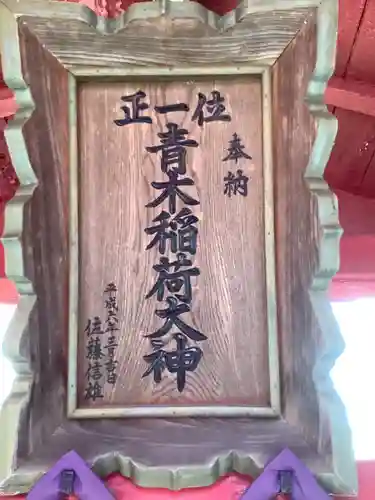 奉納
正一位
青木稲荷大神
平成六年三月吉日
佐藤信雄